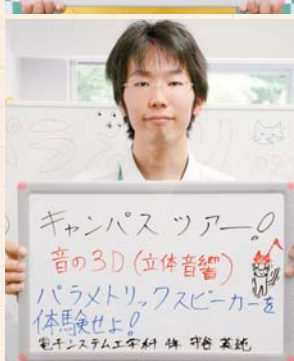 パラメトリ
キャンパス ツアー!
音の3D(立体音響)
パラメトリックスピーカーを
体験せよ!
電子システム工学科